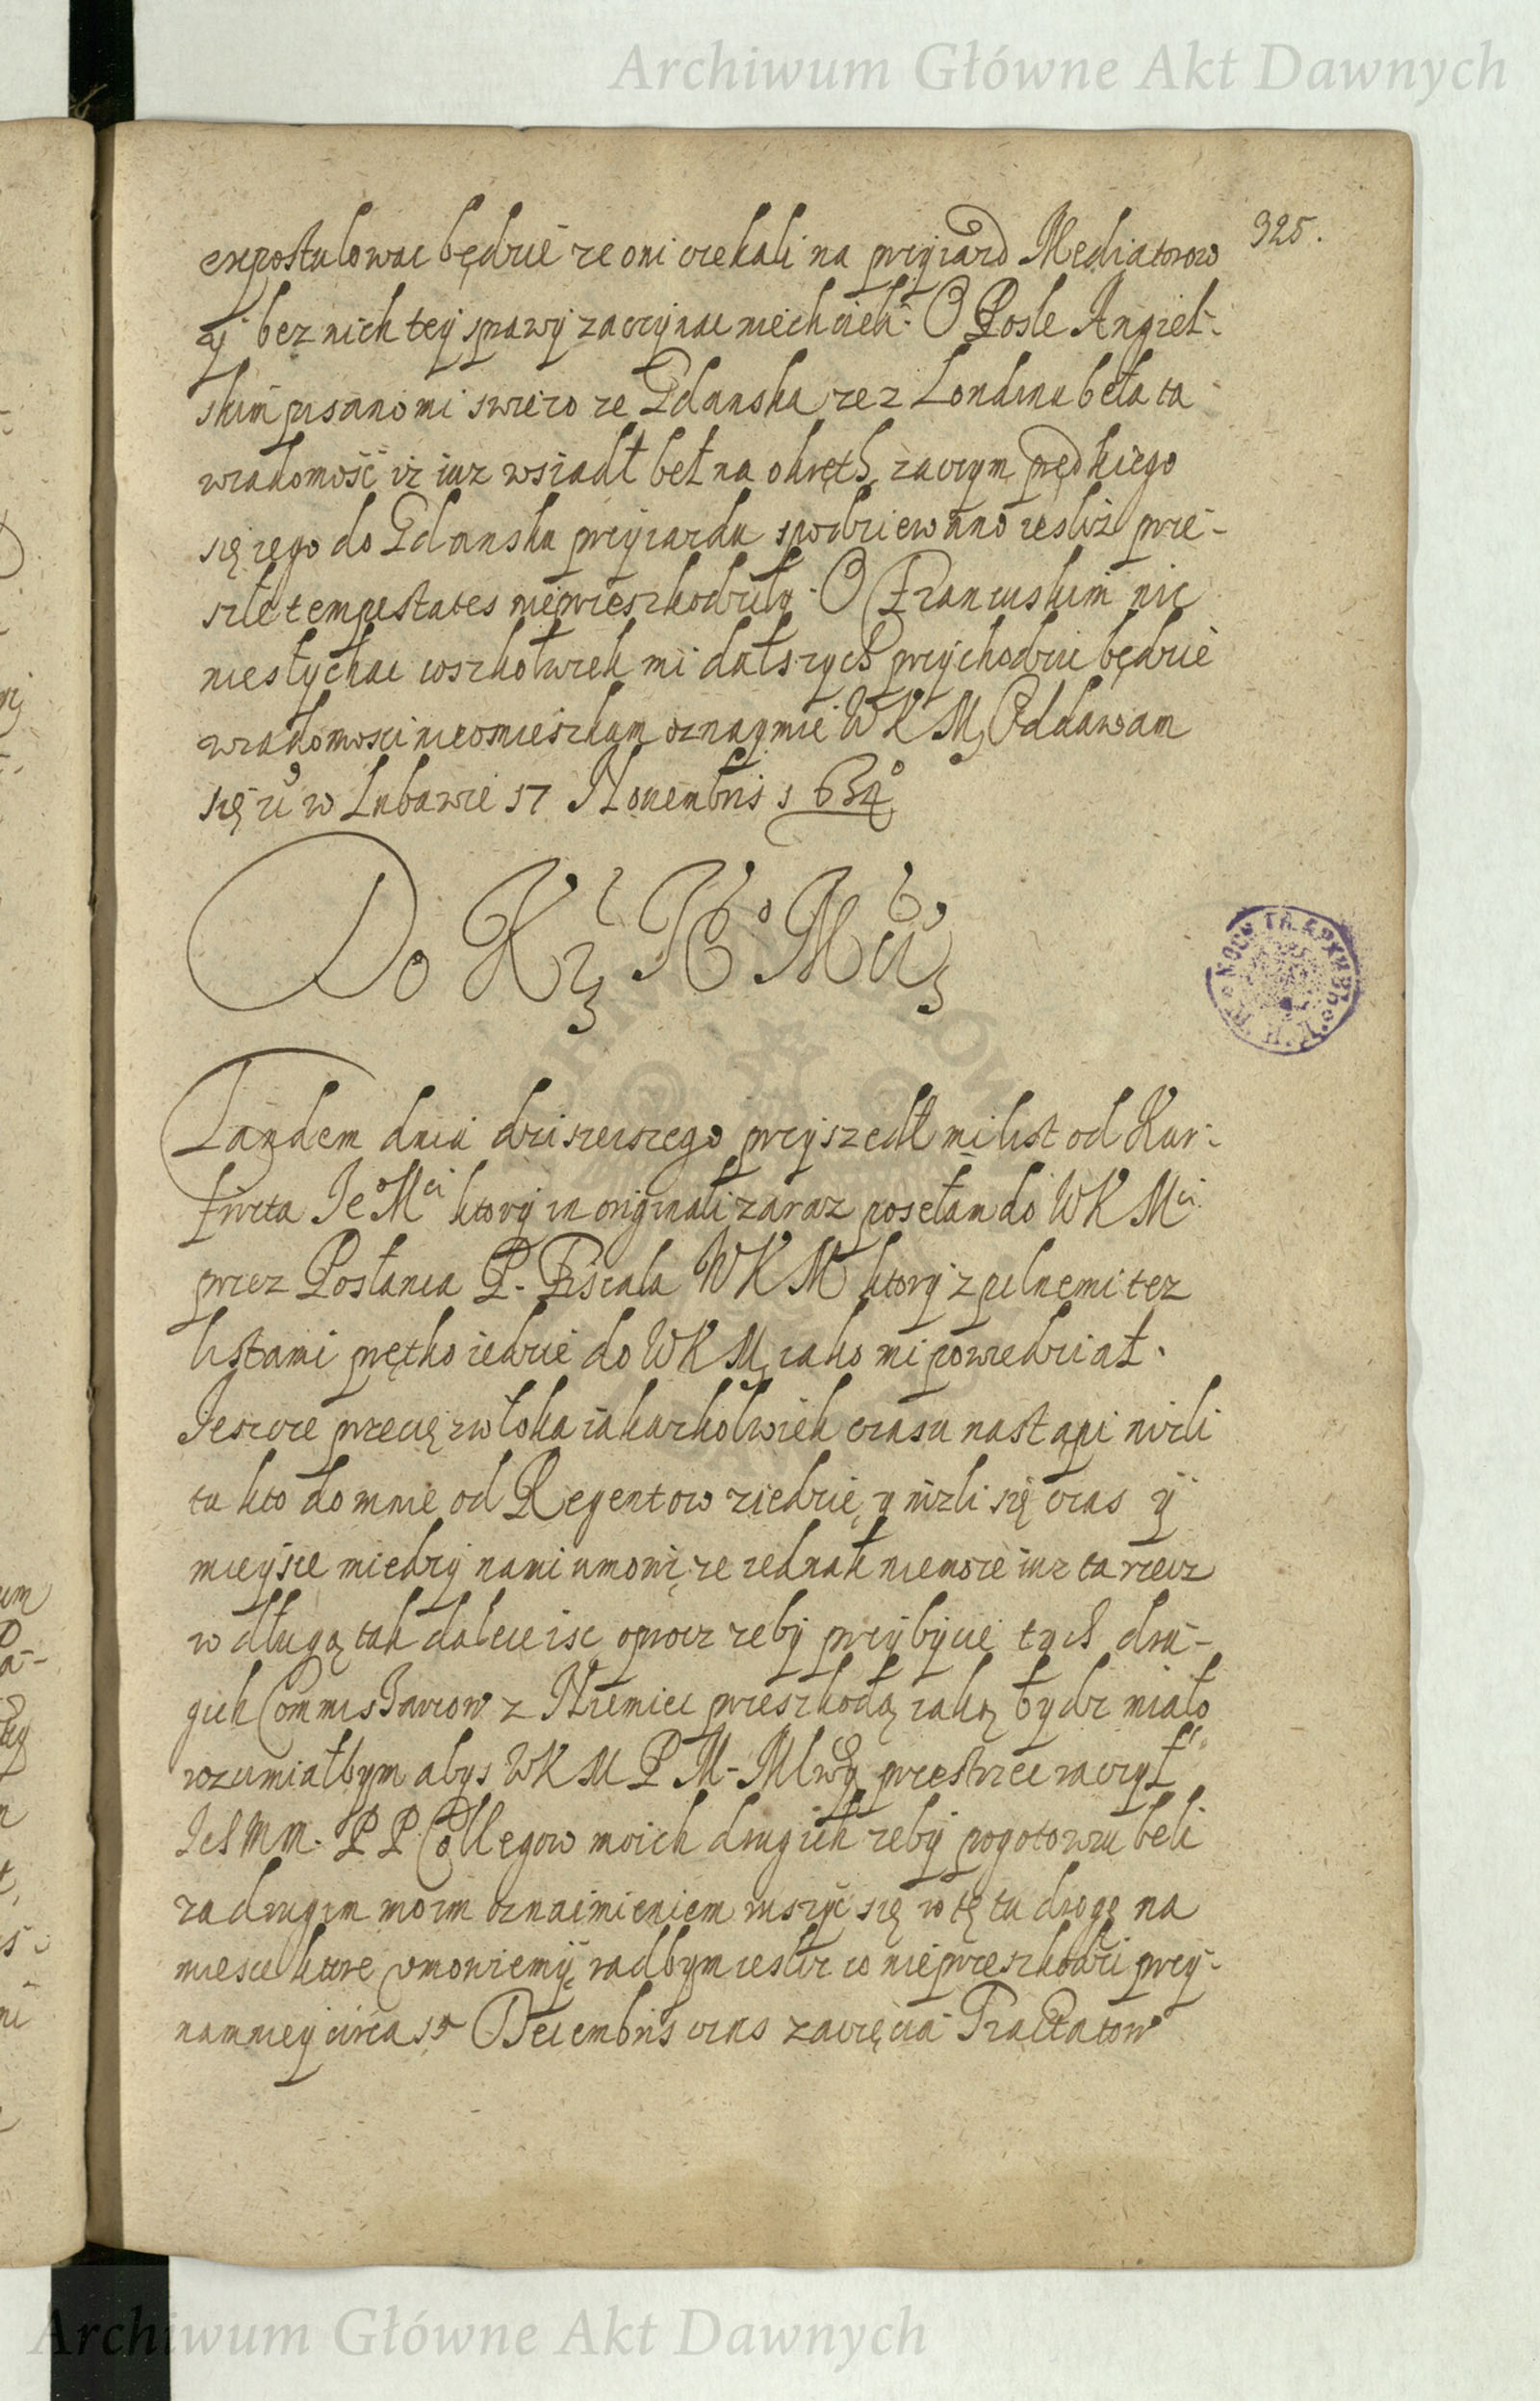 Archiwum Główne Akt Dawnych
325.
expostulowac będzie ze oni czekali na przyiazd Mediatorow
y bez nich tey sprawy zaczynac niechcieli. O Posle Angiel-
skim pisano mi swiezo ze Gdanska zez Londinu beła ta
wiadomość iż iuz wsiadł beł na okręth, zaczym prędkiego
się iego do Gdanska przyiazdu spodziewano iesliż prze-
szłe tempestates nieprzeszkodziły. O Francuskim nic
niesłychac coszkolwiek mi dalszych przychodzic będzie
wiadomosci nieomieszkam oznaymic WKM, Oddawam
się &c w Lubawie 17 Nouembris 1634
Do K I Mci
Tandem dnia dzisieiszego przyszedł mi list od Kur-
firszta Je Mci ktory in originali zaraz posełam do WKMci
przez Posłanca P. Fiscala WKM ktory z pilnemi tez
listami prętko iedzie do WKM, iako mi powiedział.
Jeszcze przecię zwłoka iakazkolwiek czasu nastąpi nizli
tu kto do mnie od Regentow ziedzie, y nizli się czas y
mieysce miedzy nami umowi, ze iednak niemoze iuz ta rzecz
w długą tak dalece isc oprocz zeby przybycie tych dru-
gich Commissarow z Niemiec przeszkodą iaką bydz miało
rozumiałbym abys WKM P M. Mlwy przestrzec raczył
Ich MM. PP Collegow moich drugich zeby pogotowiu beli
za drugim moim oznaimieniem ruszyć się w tę tu drogę na
miesce ktore vmowiemy, radbym iesliz co nieprzeszkodzi przy-
namniey circa 15 Decembris czas zaczęcia Tractatow
Archiwum Główne Akt Dawnych